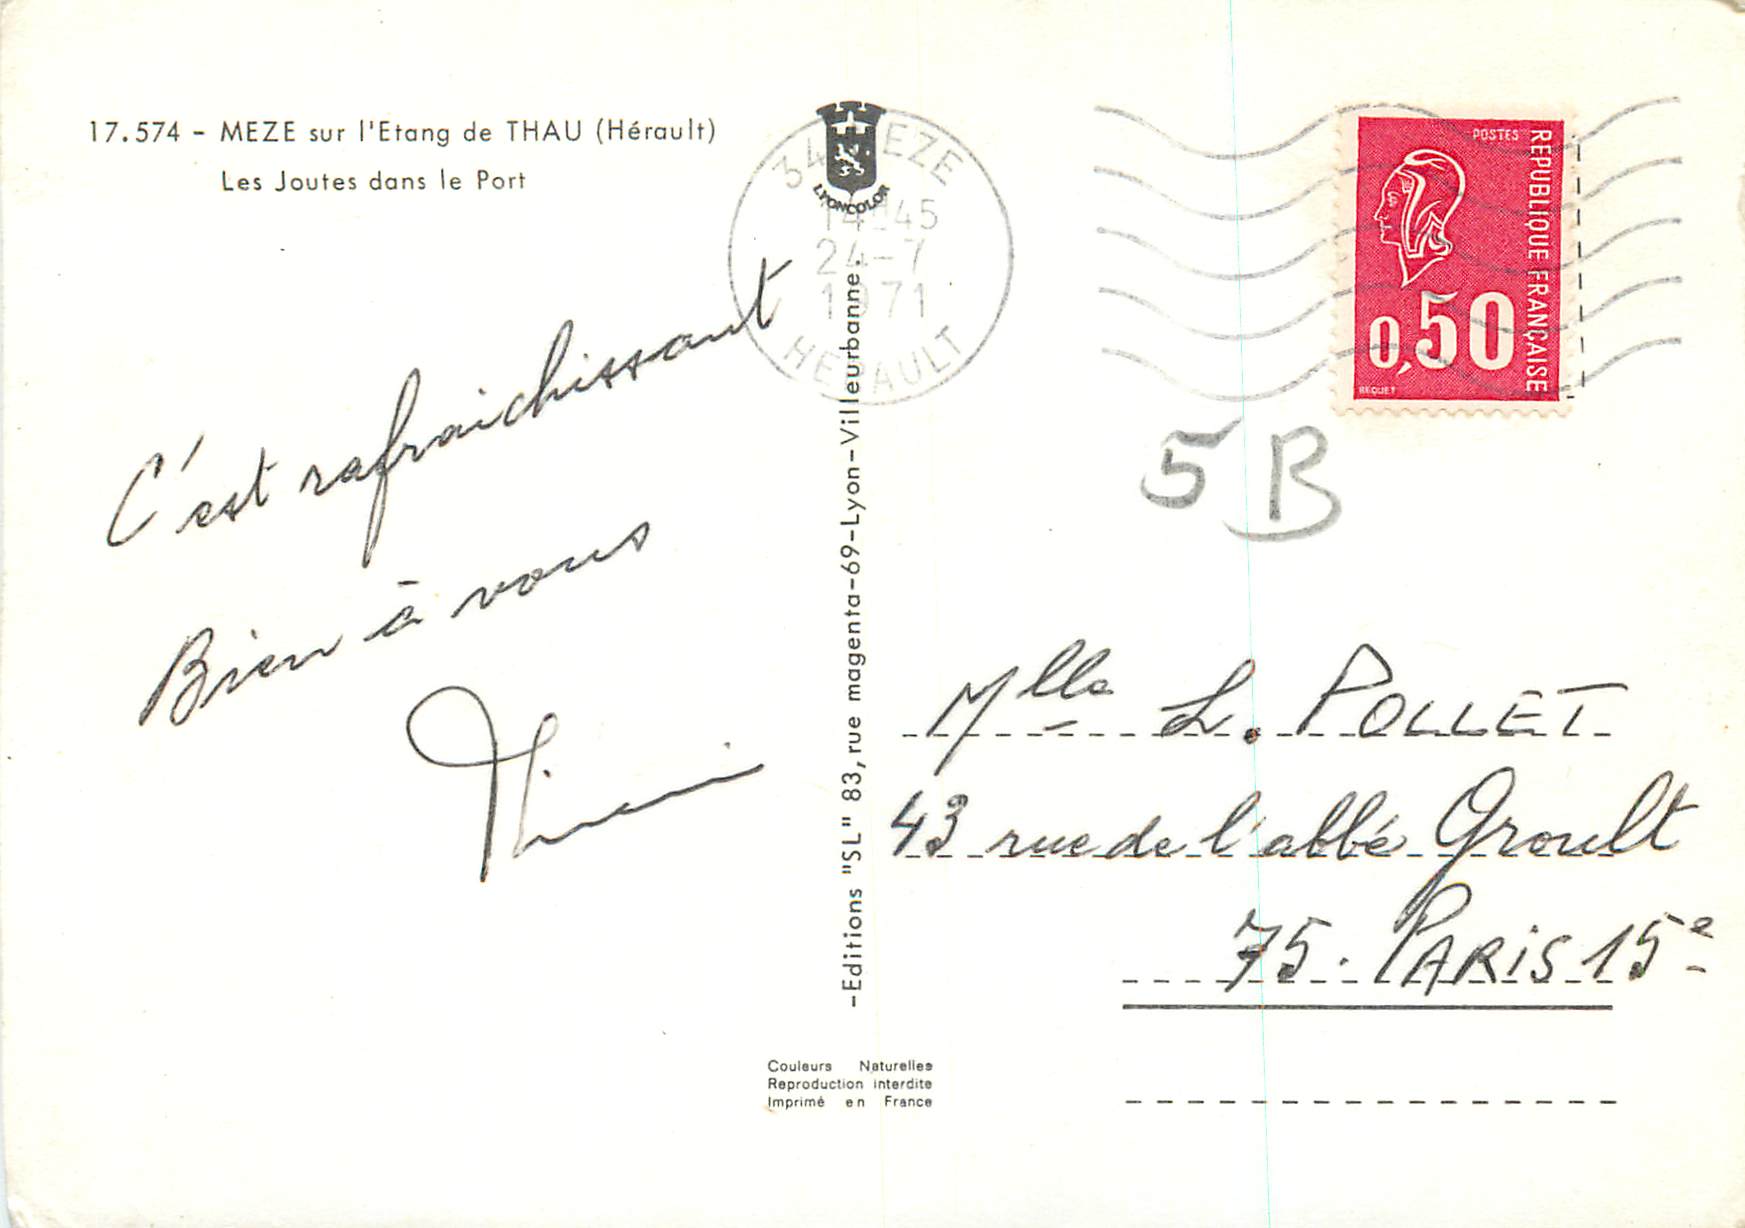 17.574 - MEZE sur l'Etang de THAU (Hérault)
Les Joutes dans le Port
C'est rafraichissant
Bien à vous
34 MEZE
14H45
24-7
1971
HERAULT
LYONCOLOR
-Editions "SL" 83, rue magenta-69-Lyon-Villeurbanne.
Couleurs Naturelles
Reproduction interdite
Imprimé en France
POSTES
REPUBLIQUE FRANÇAISE
0,50
BEQUET
5B
Mlle L. POLLET
43 rue de l'abbé Groult
75. PARIS 15e